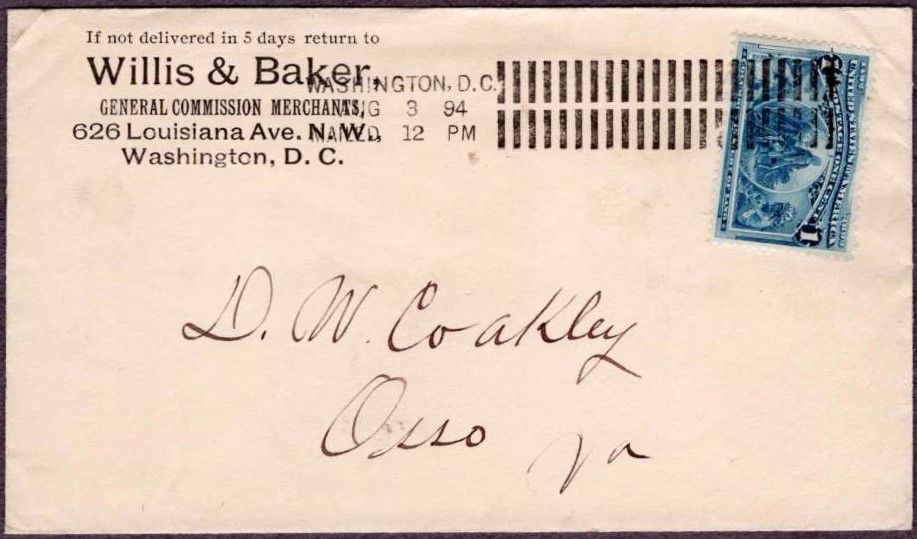 If not delivered in 5 days return to
Willis & Baker,
GENERAL COMMISSION MERCHANTS,
626 Louisiana Ave. N. W.,
Washington, D. C.
WASHINGTON, D.C.
AUG 3 94
MAILED, 12 PM
1
D. W. Coakley
Osso Va